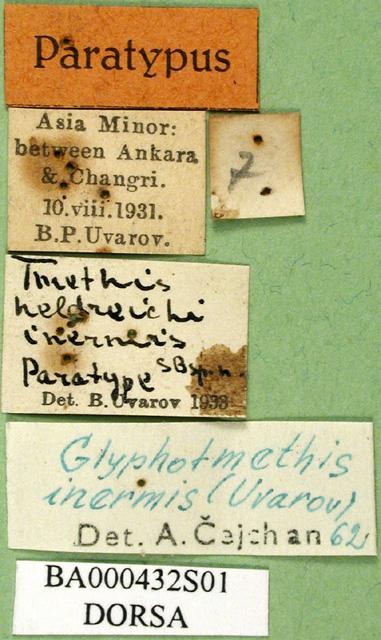 Paratypus
Asia Minor:
between Ankara
& Changri.
10.viii.1931.
B.P.Uvarov.
7
Tmethis
heldreichi
inermis
Paratype SBsp. n.
Det. B. Uvarov 1933
Glyphotmethis
inermis (Uvarov)
Det. A. Čejchan 62
BA000432S01
DORSA